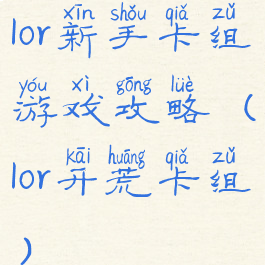 xīn shǒu qiǎ zǔ
lor新手卡组
yóu xì gōng lüè
游戏攻略（
kāi huāng qiǎ zǔ
lor开荒卡组
）